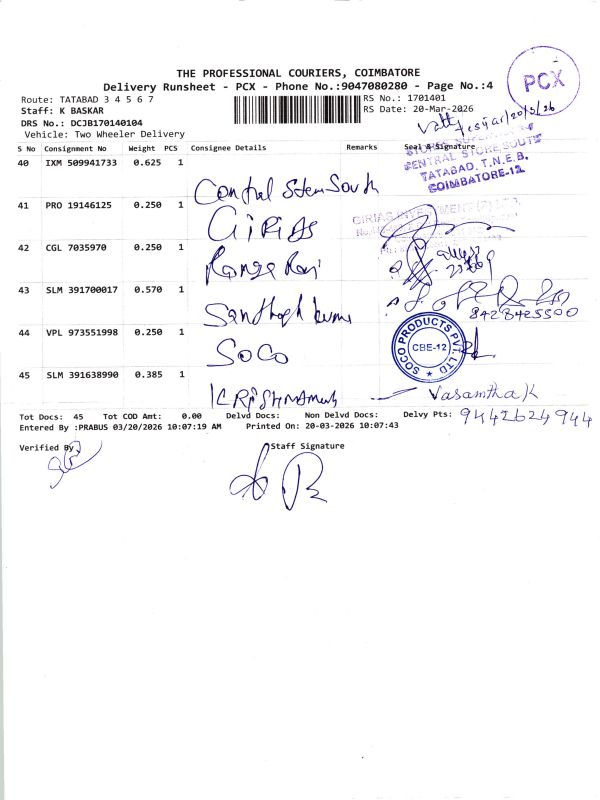 THE PROFESSIONAL COURIERS, COIMBATORE
Delivery Runsheet - PCX - Phone No.:9047080280 - Page No.:4
PCX
Route: TATABAD 3 4 5 6 7
RS No.: 1701401
Staff: K BASKAR
RS Date: 20-Mar-2026
DRS No.: DCJB170140104
Vehicle: Two Wheeler Delivery
20/3/26
S No Consignment No Weight PCS Consignee Details Remarks Seal & Signature
CENTRAL STORE/SOUTH
TATABAD, T.N.E.B.
COIMBATORE-12
40 IXM 509941733 0.625 1 Central Store South
41 PRO 19146125 0.250 1 GIRIAS
42 CGL 7035970 0.250 1
43 SLM 391700017 0.570 1 Santhosh kumar
8428425500
44 VPL 973551998 0.250 1 SOCO
SOCO PRODUCTS PVT. LTD
CBE-12
45 SLM 391638990 0.385 1
Vasantha K
9442624944
Tot Docs: 45 Tot COD Amt: 0.00 Delvd Docs: Non Delvd Docs: Delvy Pts:
Entered By :PRABUS 03/20/2026 10:07:19 AM Printed On: 20-03-2026 10:07:43
Verified By Staff Signature